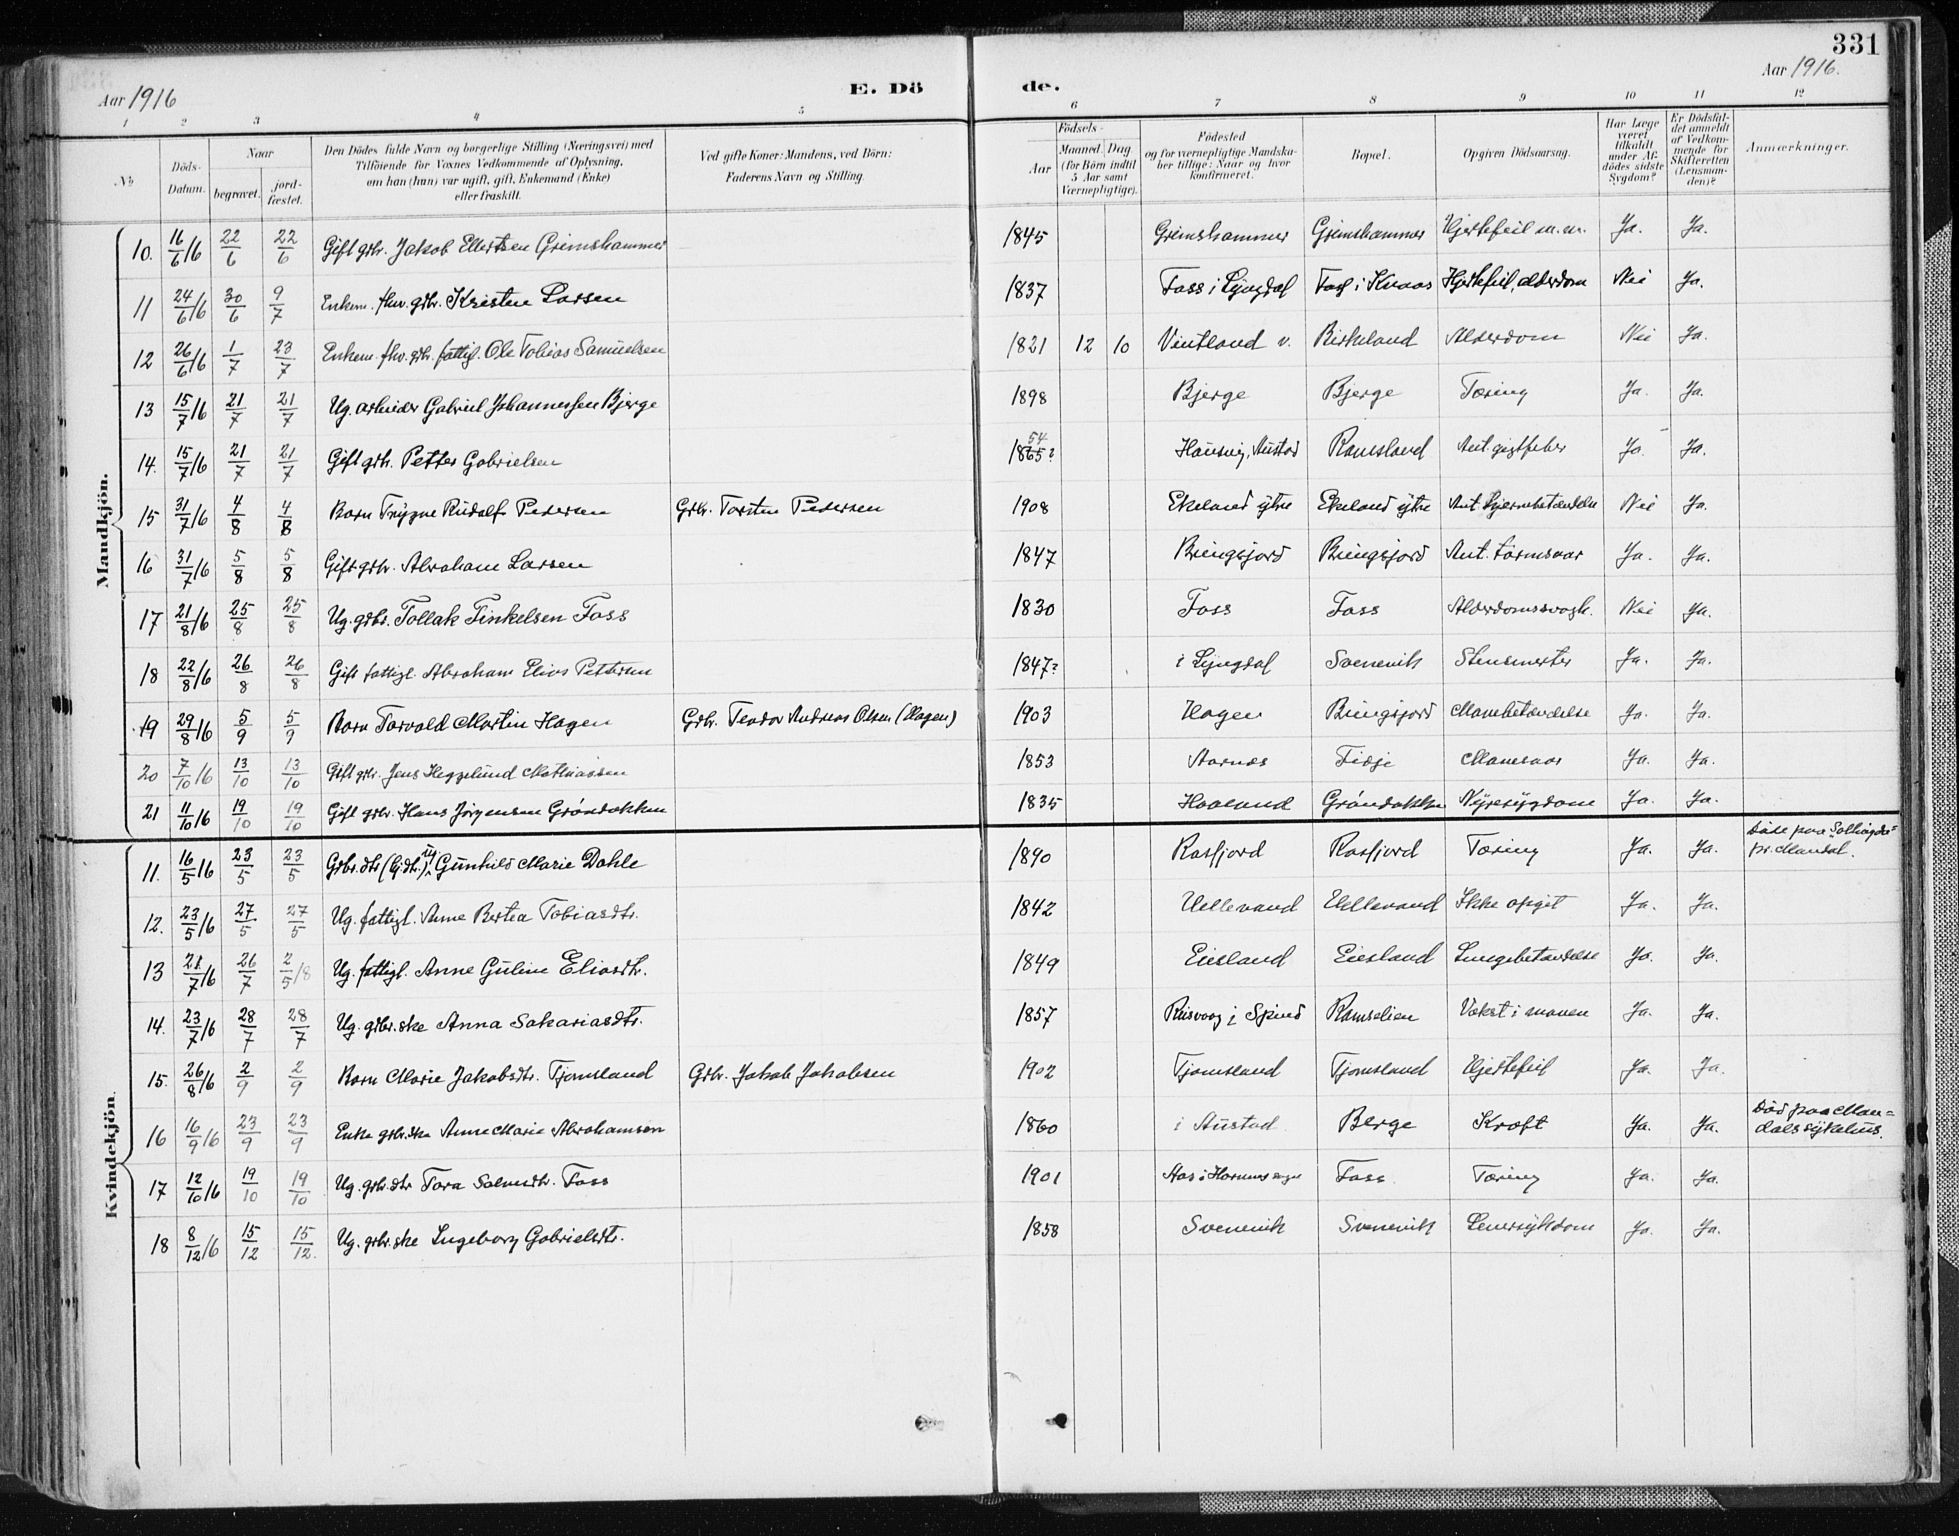 331
Aar 1916
E. Dö de.
Aar 1916.
1 2 3 4 5 6 7 8 9 10 11 12
No
Döds-Datum.
Naar
begravet.
jord-fæstet.
Den Dödes fulde Navn og borgerlige Stilling (Næringsvei) med
Tilföiende for Voxnes Vedkommende af Oplysning,
om han (hun) var ugift, gift, Enkemand (Enke)
eller fraskilt.
Ved gifte Koner: Mandens, ved Börn:
Faderens Navn og Stilling.
Födsels-
Aar
Maaned. Dag
(for Börn indtil
5 Aar samt
Værnepligtige).
Födested
og for værnepligtige Mandska-
ber tillige: Naar og hvor
konfirmeret.
Bopæl.
Opgiven Dödsaarsag.
Har Læge
været
tilkaldt
under Af-
dödes sidste
Sygdom?
Er Dödsfal-
det anmeldt
af Vedkom-
mende for
Skifteretten
(Lensman-
den)?
Anmærkninger.
Mandkjön.
10. 16/6 16 22/6 22/6 Gift gdbr. Jakob Ellertsen Grimshammer 1845 Grimshammer Grimshammer Hjertefeil m.m. Ja. Ja.
11 24/6 16 30/6 9/7 Enkem. fhv. gdbr. Kristen Larsen 1837 Foss i Lyngdal Foss i Kvaas Hjertefeil, alderdom Nei Ja.
12 26/6 16 1/7 23/7 Enkem. fhv. gdbr. fattigl. Ole Tobias Samuelsen 1821 12 10 Vintland v. Birkeland Alderdom Nei Ja.
13 15/7 16 21/7 21/7 Ug. arbeider Gabriel Johannessen Bjerge 1898 Bjerge Bjerge Tæring Ja. Ja.
14. 15/7 16 21/7 21/7 Gift gdbr. Petter Gabrielsen 54 1865? Hausvig, Austad Ramsland Ant. gigtfeber Ja Ja.
15 31/7 16 4/8 4/8 Barn Trygve Rudolf Pedersen Gdbr. Torsten Pedersen 1908 Ekeland ytre Ekeland ytre Ant. hjernebetændelse Nei Ja.
16 31/7 16 5/8 5/8 Gift gdbr. Abraham Larsen 1847 Bringsjord Bringsjord Ant. tarmsaar Ja. Ja.
17 21/8 16 25/8 25/8 Ug. gdbr. Tollak Tinkelsen Foss 1830 Foss Foss Alderdomssvagh. Nei Ja.
18 22/8 16 26/8 26/8 Gift fattigl. Abraham Elias Pettersen 1847? i Lyngdal Svenevik Stensmerter Ja. Ja.
19 29/8 16 5/9 5/9 Barn Torvald Martin Hagen Gdbr. Teodor Andreas Olsen (Hagen) 1903 Hagen Bringsjord Mavebetændelse Ja. Ja.
20 7/10 16 13/10 13/10 Gift gdbr. Jens Heggelund Mathiassen 1853 Aarnes Fidje Mavesaar Ja. Ja.
21 11/10 16 19/10 19/10 Gift gdbr. Hans Jørgensen Grøndokken 1835 Haaland Grøndokken Nyresygdom Ja. Ja.
Kvindekjön.
11. 16/5 16 23/5 23/5 Gdbr.dtr (G.dtr.) ug Gunhild Marie Dahle 1890 Rosfjord Rosfjord Tæring Ja. Ja. Døde paa Solhøgda
pr. Mandal.
12. 23/5 16 27/5 27/5 Ug. fattigl. Anne Bertea Tobiasdtr. 1842 Hellevand Hellevand Ikke opgit Ja. Ja.
13 21/7 16 26/7 2/5 18 Ug. fattigl. Anne Guline Eliasdtr. 1849 Eiesland Eiesland Lungebetændelse Ja. Ja.
14. 23/7 16 28/7 28/7 Ug. gdbr.ske Anna Sakariasdtr. 1857 Risvaag i Spind Ramselien Vekst i maven Ja. Ja.
15. 26/8 16 2/9 2/9 Barn Marie Jakobsdtr. Tjomsland Gdbr. Jakob Jakobsen 1902 Tjomsland Tjomsland Hjertefeil Ja. Ja.
16 16/9 16 23/9 23/9 Enke gdbr.ske Anne Marie Abrahamsen 1860 i Austad Berge Kræft Ja. Ja. Død paa Man-
dals sykehus.
17 12/10 16 19/10 19/10 Ug. gdbr.dtr Tora Salvesdtr. Foss 1901 Aas i Foss Tæring Ja. Ja.
18 8/12 16 15/12 15/12. Ug. gdbr.ske Ingeborg Gabrielsdtr. 1858 Svenevik Svenevik Leversykdom Ja Ja.